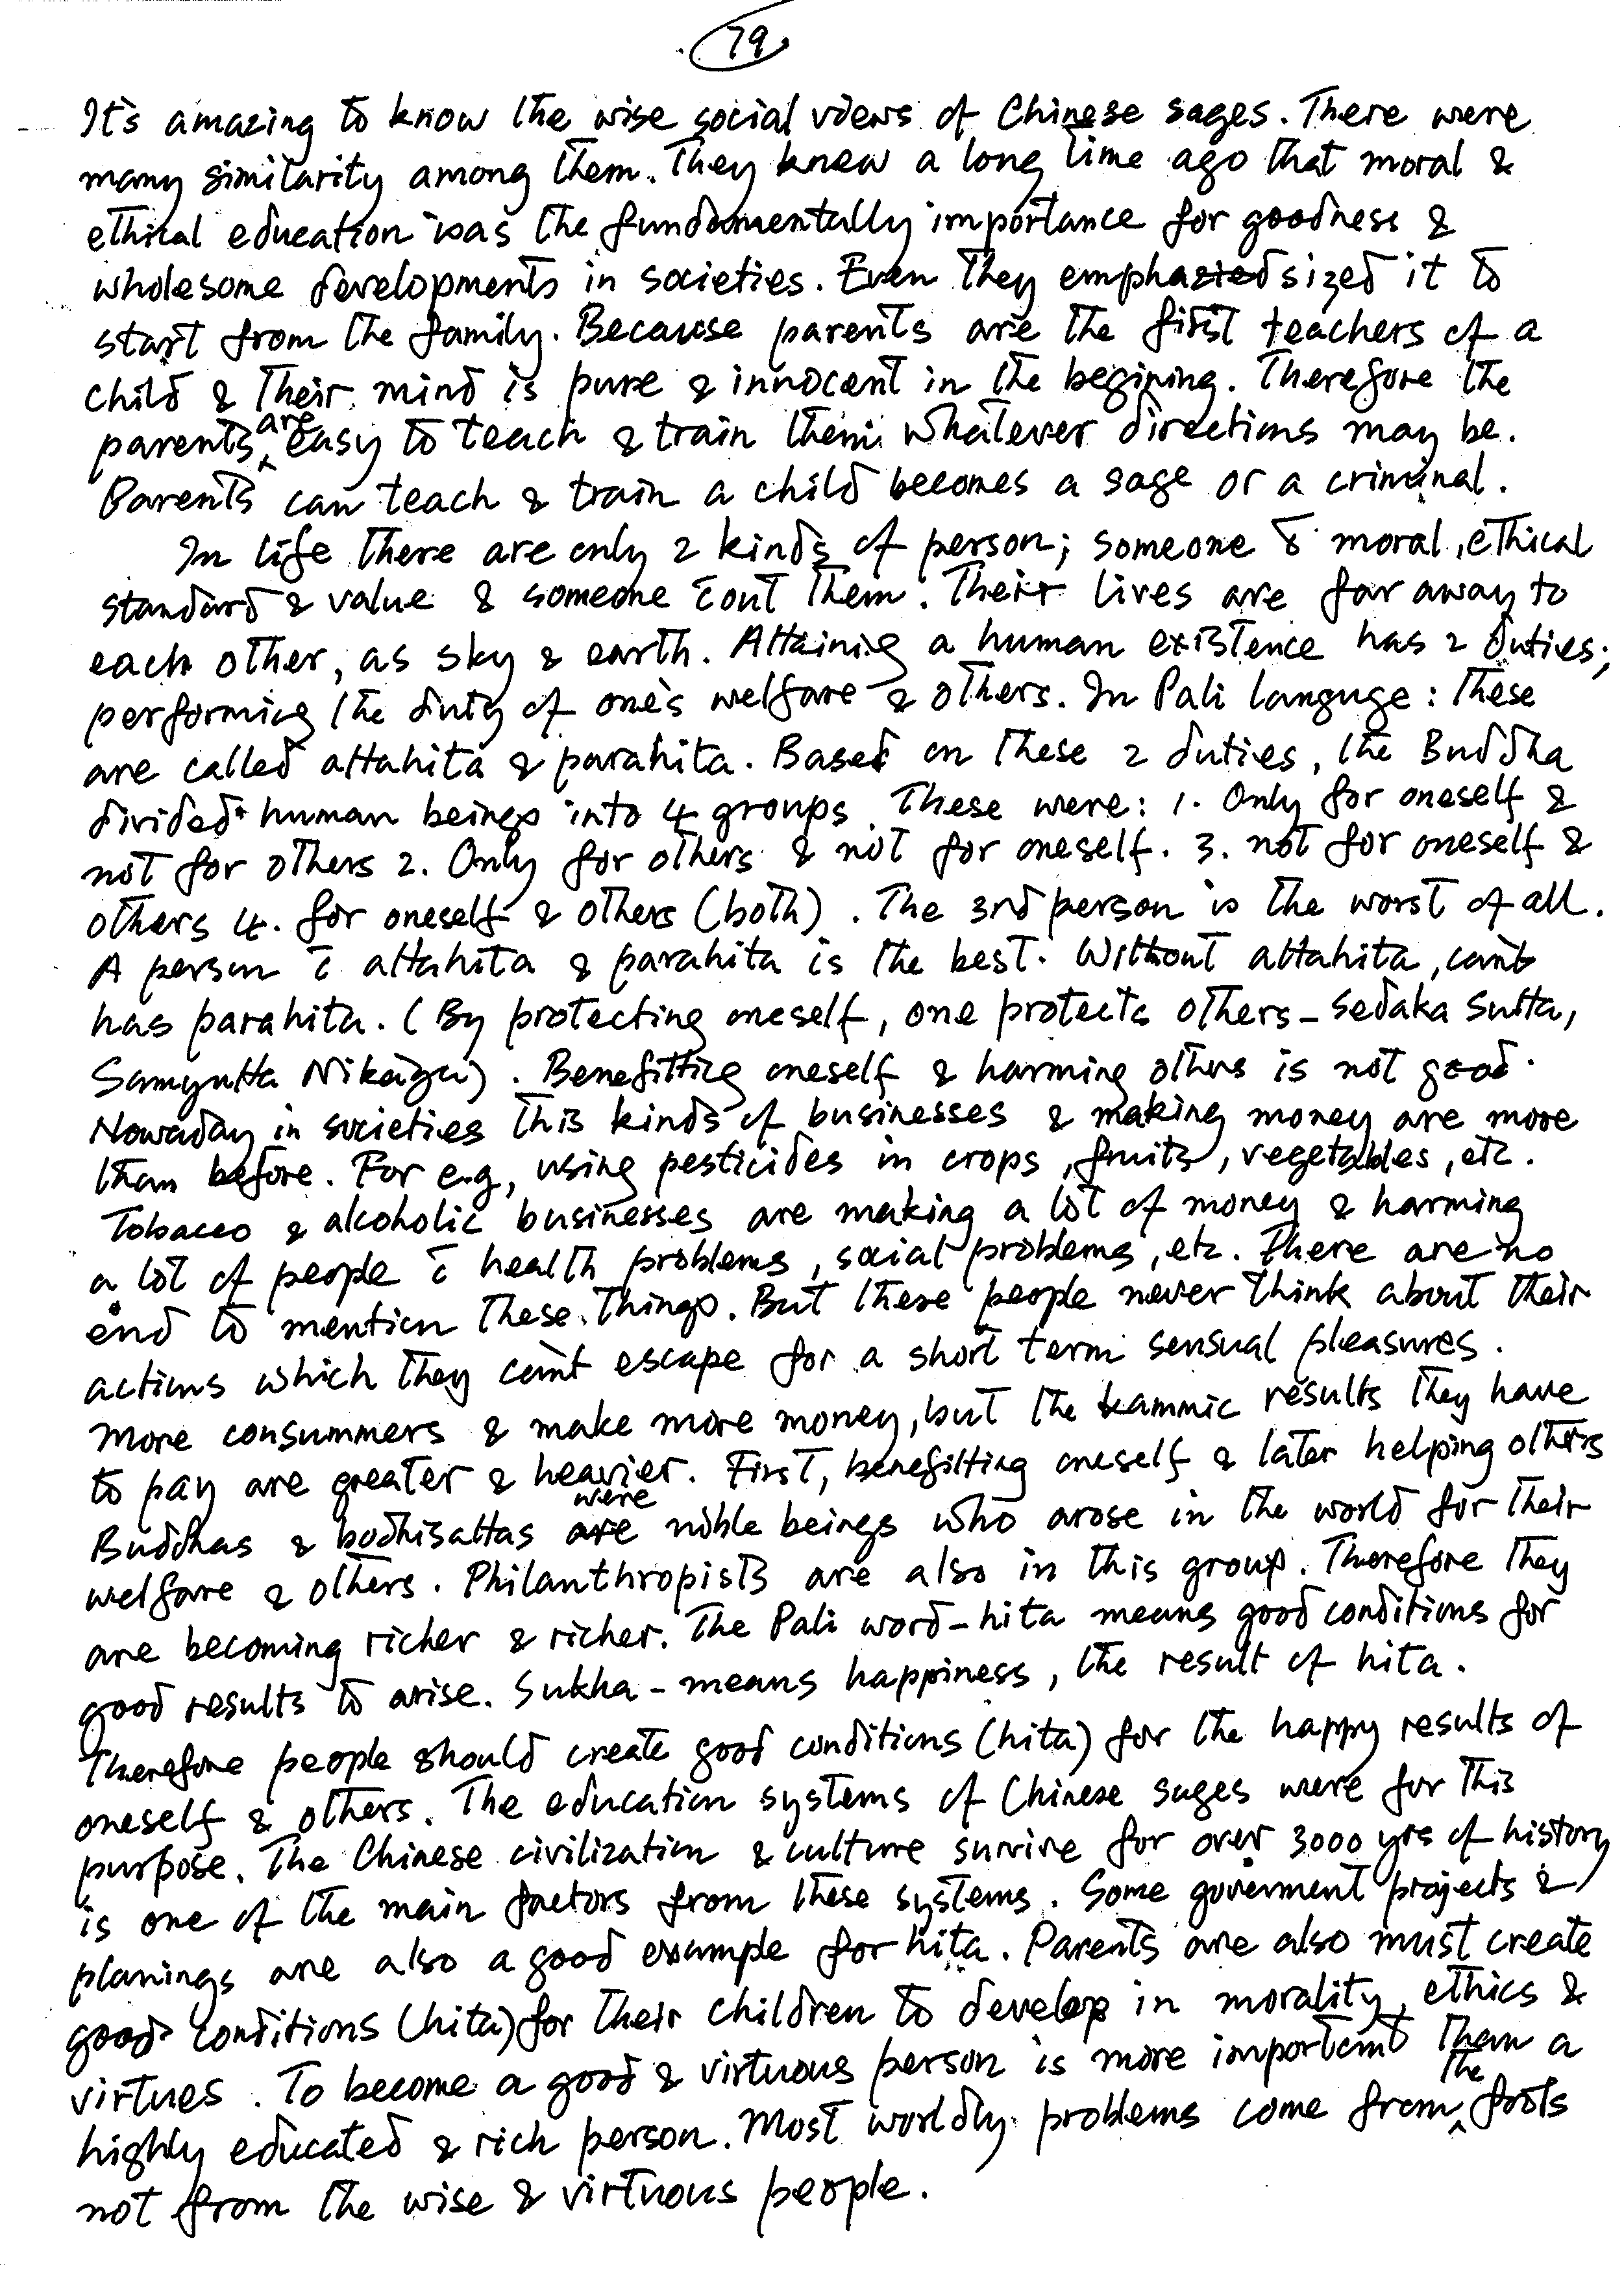 79
It's amazing to know the wise social views of Chinese sages. There were
many similarity among them. They knew a long time ago that moral &
ethical education was the fundamentally importance for goodness &
wholesome developments in societies. Even they emphasized it to
start from the family. Because parents are the first teachers of a
child & their mind is pure & innocent in the begining. Therefore the
parents are easy to teach & train them whatever directions may be.
Parents can teach & train a child becomes a sage or a criminal.
In life there are only 2 kinds of person; someone c̄ moral, ethical
standard & value & someone c̄out them. Their lives are far away to
each other, as sky & earth. Attaining a human existence has 2 duties;
performing the duty of one's welfare & others. In Pali languge: these
are called attahita & parahita. Based on these 2 duties, the Buddha
divided human beings into 4 groups. These were: 1. Only for oneself &
not for others 2. Only for others & not for oneself. 3. not for oneself &
others 4. for oneself & others (both). The 3rd person is the worst of all.
A person c̄ attahita & parahita is the best. Without attahita, can't
has parahita. (By protecting oneself, one protects others – Sedaka Sutta,
Samyutta Nikāya). Benefitting oneself & harming others is not good.
Nowaday in societies this kinds of businesses & making money are more
than before. For e.g, using pesticides in crops, fruits, vegetables, etc.
Tobacco & alcoholic businesses are making a lot of money & harming
a lot of people c̄ health problems, social problems, etc. There are no
end to mention these things. But these people never think about their
actions which they can't escape for a short term sensual pleasures.
More consummers & make more money, but the kammic results they have
to pay are greater & heavier. First, benefitting oneself & later helping others
Buddhas & bodhisattas were noble beings who arose in the world for their
welfare & others. Philanthropists are also in this group. Therefore they
are becoming richer & richer. The Pali word – hita means good conditions for
good results to arise. Sukha – means happiness, the result of hita.
Therefore people should create good conditions (hita) for the happy results of
oneself & others. The education systems of Chinese sages were for this
purpose. The Chinese civilization & culture survive for over 3000 yrs of history
is one of the main factors from these systems. Some goverment projects &
planings are also a good example for hita. Parents are also must create
good conditions (hita) for their children to develop in morality, ethics &
virtues. To become a good & virtuous person is more important than a
highly educated & rich person. Most worldly problems come from the fools
not from the wise & virtuous people.